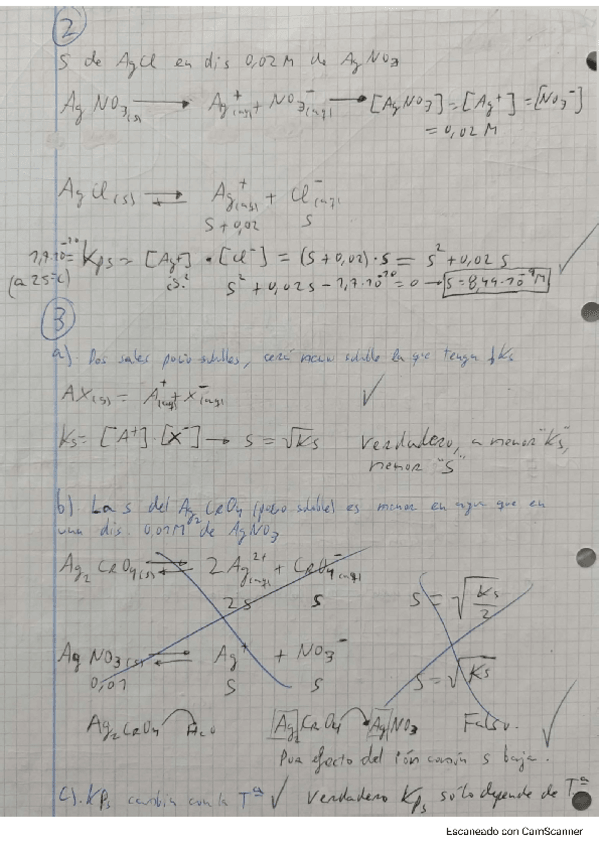 2
S de AgCl en dis 0,02M de AgNO3
AgNO3(s) → Ag+(aq) + NO3-(aq) → [AgNO3] = [Ag+] = [NO3-]
= 0,02 M
AgCl(s) ⇌ Ag+(aq) + Cl-(aq)
S+0,02 S
1,7·10^-10 = Kps = [Ag+] · [Cl-] = (S+0,02)·S = S^2 + 0,02 S
(a 25ºC) S^2 + 0,02S - 1,7·10^-10 = 0 → S = 8,49·10^-9 M ✓
3
a) Dos sales poco solubles, será menos soluble la que tenga ↓Ks
AX(s) = A+(aq) + X-(aq) ✓
Ks = [A+]·[X-] → S = √Ks Verdadero, a menor "Ks",
menor "S"
b) La s del Ag2CrO4 (poco soluble) es menor en agua que en
una dis. 0,01M de AgNO3
Ag2CrO4(s) ⇌ 2Ag2+(aq) + CrO4-(aq)
2s s S = √Ks/2
AgNO3(s) ⇌ Ag+ + NO3-
0,01 S S S = √Ks
Ag2CrO4 H2O Ag2CrO4 AgNO3 Falso.
Por efecto del ión común s baja. ✓
c). KPs cambia con la Tª ✓ Verdadero Kps sólo depende de Tª
Escaneado con CamScanner